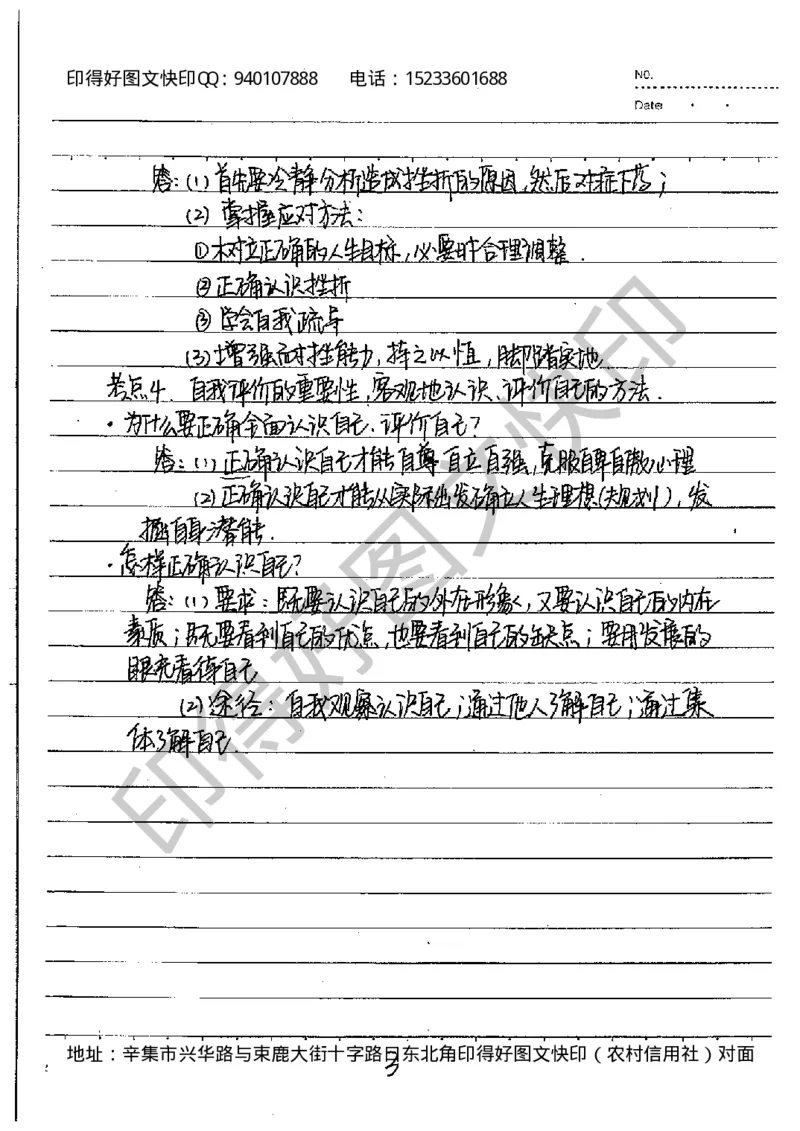 印得好图文快印QQ：940107888 电话：15233601688
NO.
Date
答：(1) 首先要冷静分析造成挫折的原因，然后对症下药；
(2) 掌握应对方法：
①树立正确的人生目标，必要时合理调整．
②正确认识挫折
③学会自我疏导
(3)增强耐挫能力，持之以恒，脚踏实地
考点4．自我评价的重要性，客观地认识、评价自己的方法．
·为什么要正确全面认识自己、评价自己？
答：(1)正确认识自己才能自尊自立自强，克服自卑自傲心理
(2)正确认识自己才能从实际出发确立人生理想(规划)，发
掘自身潜能．
·怎样正确认识自己？
答：(1)要求：既要认识自己的外在形象，又要认识自己的内在
素质；既要看到自己的优点，也要看到自己的缺点；要用发展的
眼光看待自己
(2)途径：自我观察认识自己；通过他人了解自己；通过集
体了解自己．
印得好图文快印
地址：辛集市兴华路与束鹿大街十字路口东北角印得好图文快印（农村信用社）对面
3